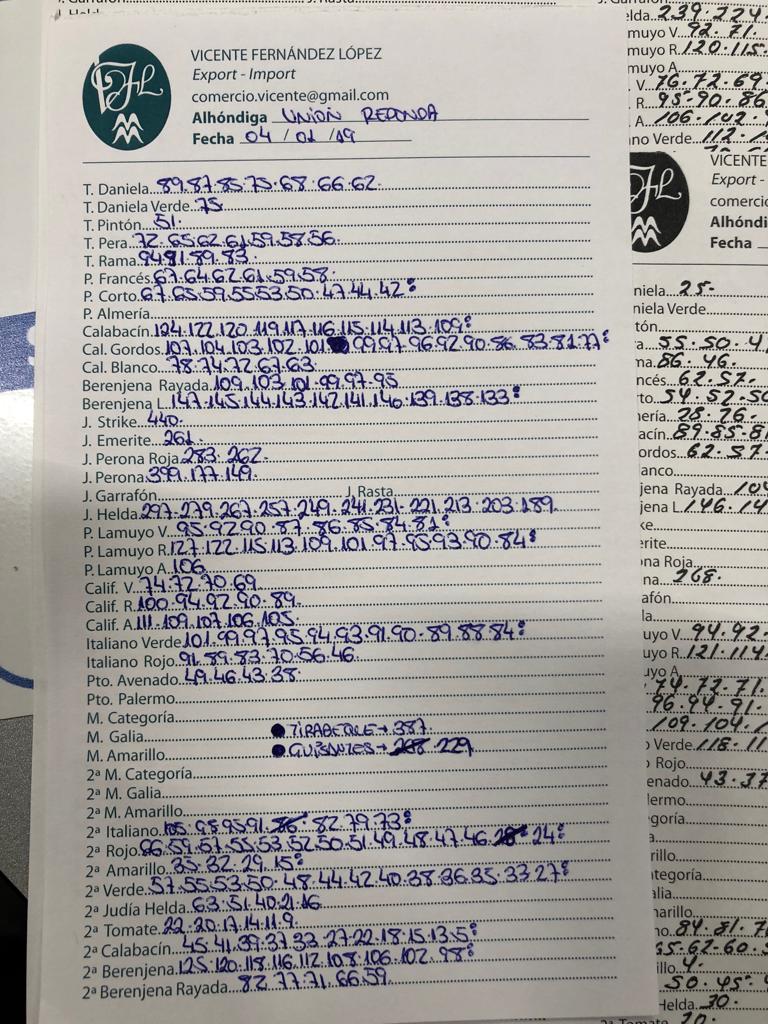 VICENTE FERNÁNDEZ LÓPEZ
Export - Import
comercio.vicente@gmail.com
Alhóndiga UNIÓN REDONDA
Fecha 04 / 01 / 19
T. Daniela 89.87.85.75.68.66.62.
T. Daniela Verde 75
T. Pintón 51.
T. Pera 72.65.62.61.59.58.56.
T. Rama 94.91.89.83.
P. Francés 67.64.62.61.59.58.
P. Corto 67.65.59.55.53.50.47.44.42
P. Almería
Calabacín 124.122.120.119.117.116.115.114.113.109
Cal. Gordos 107.104.103.102.101 99.97.96.92.90.86.83.81.77
Cal. Blanco 78.74.72.67.63
Berenjena Rayada 109.103.101.99.97.95
Berenjena L. 147.145.144.143.142.141.140.139.138.133
J. Strike 440.
J. Emerite 261.
J. Perona Roja 283.262.
J. Perona 399.177.149.
J. Garrafón J. Rasta
J. Helda 297.279.267.257.249.241.231.221.213.203.189.
P. Lamuyo V. 95.92.90.87.86.85.84.81
P. Lamuyo R. 127.122.115.113.109.101.97.95.93.90.84
P. Lamuyo A. 106
Calif. V. 74.72.70.69
Calif. R. 100.94.92.90.89.
Calif. A. 111.109.107.106.105.
Italiano Verde 101.99.97.95.94.93.91.90.89.88.84
Italiano Rojo 91.89.83.70.56.46.
Pto. Avenado 49.46.43.38.
Pto. Palermo
M. Categoría
M. Galia TIRABEQUE → 387
M. Amarillo GUISANTES → 229
2ª M. Categoría
2ª M. Galia
2ª M. Amarillo
2ª Italiano 105.95.95.91. 82.79.73
2ª Rojo 66.59.57.55.53.52.50.51.49.48.47.46. 24
2ª Amarillo 35.32.29.15
2ª Verde 57.55.53.50.48.44.42.40.38.36.35.33.27
2ª Judía Helda 63.51.40.21.16
2ª Tomate 22.20.17.14.11.9.
2ª Calabacín 45.41.39.37.33.27.22.18.15.13.5
2ª Berenjena 125.120.118.116.112.108.106.102.98
2ª Berenjena Rayada 82.77.71.66.59.
elda 239.224.
muyo V. 92.71.
muyo R. 120.115.
muyo A.
V. 76.72.69
R. 95.90.86
A. 106.102.
no Verde 112.1
VICENTE
Export -
comercio
Alhóndi
Fecha
niela 25.
niela Verde
tón
a 55.50.4
ma 86.46.
ncés 62.57.
to. 54.52.50
ería 28.26.
acín 89.85.8
ordos 62.57.
anco
jena Rayada 104
jena L. 146.14
ke
erite
ona Roja
na 268.
afón
la
uyo V. 94.92.
uyo R. 121.114
uyo A.
74.72.71.
96.94.91.
109.104.1
o Verde 118.11
o Rojo
enado 43.37
lermo
goría
a
rillo
ategoría
alia
marillo
no. 84.81.7
65.62.60.5
illo 4.
50.45.
Helda 30.
2ª Tomate 20.